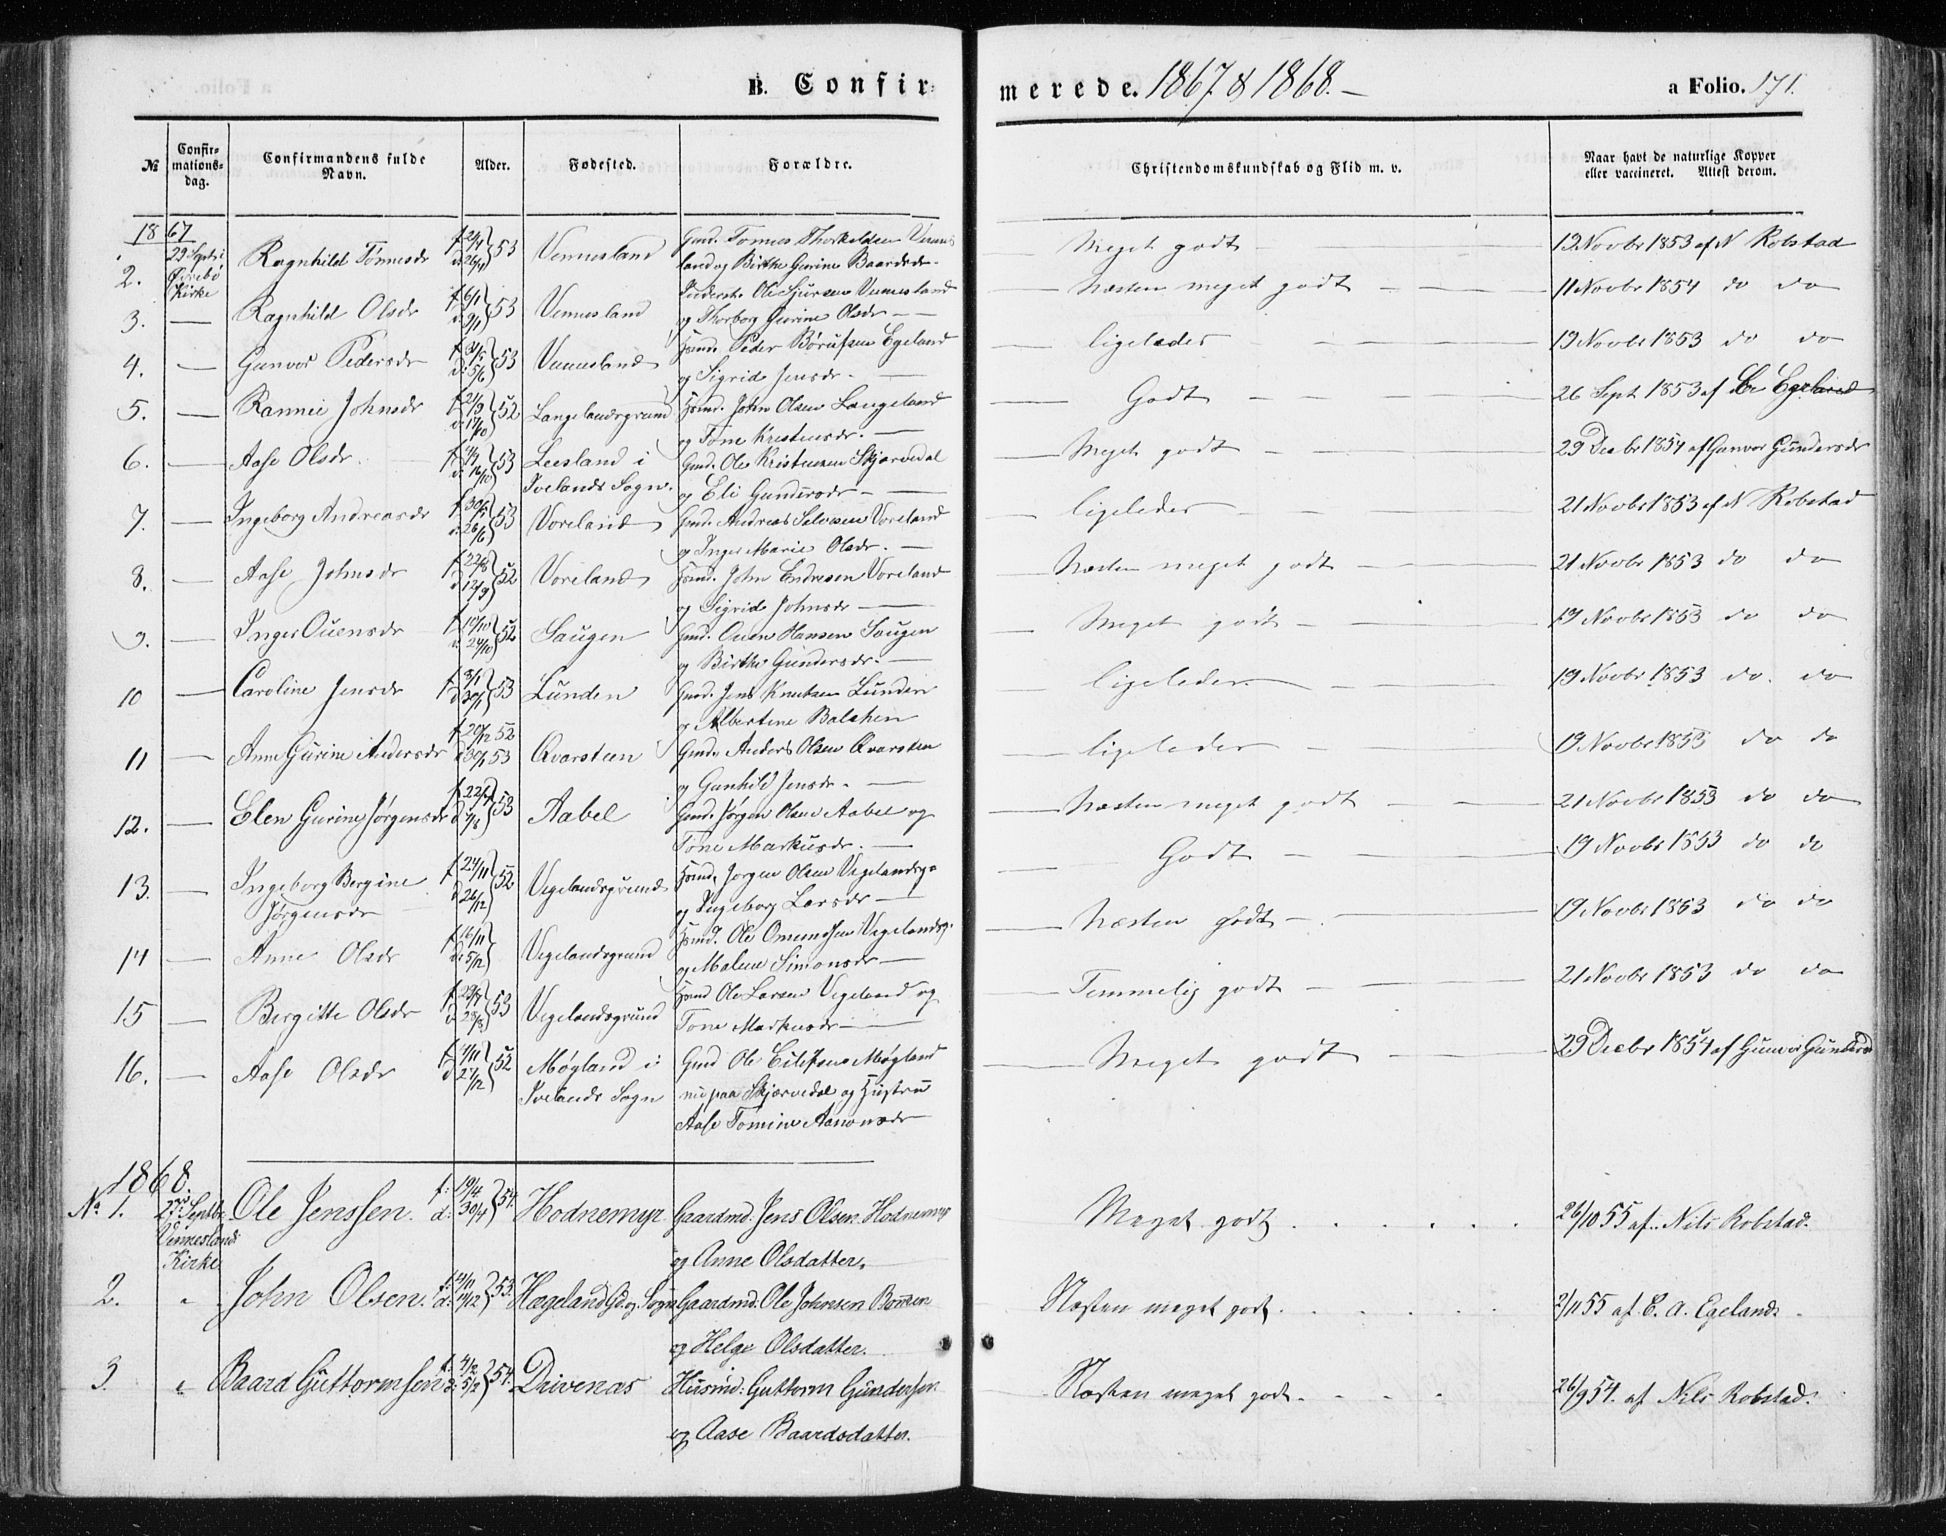 B. Confirmerede. 1867 & 1868.
a Folio. 171.
№ | Confirmationsdag. | Confirmandens fulde Navn. | Alder. | Fødested. | Forældre. | Christendomskundskab og Flid m. v. | Naar havt de naturlige Kopper eller vaccineret. Attest derom.
1867
2. 29 Septbr i Øvrebø Kirke Ragnhild Tønnesdr 53 Vennesland Gmd. Tønnes Thorkeldsen Vennesland og Birthe Gurine Baardsdr — Meget godt — 19 Novbr 1853 af N Robstad
3. — Ragnhild Olsdr f 6/1 d 9/1 53 Vennesland Ole Sjursen Vennesland og Thorborg Gurine Olsdr — Næsten meget godt — 11 Novbr 1854 do do
4. — Gunvor Pedersdr d 5/6 53 Vennesland Huusmd. Peder Egeland og Sigrid Jensdr. — ligeledes — 19 Novbr 1853 do do
5. — Rannei Johnsdr f 21/9 d 17/10 52 Langelandsgrund Huusmd. John Olsen Langeland og Tone Kristensdr. — Godt — 26 Sept 1853 af Egeland
6. — Aase Olsdr. d 16/10 53 Leesland i Ivelands Sogn. Gmd. Ole Kristensen Skjærvedal og Eli Gundersdr — Meget godt — 29 Decbr 1854 af Gunvor Gundersdr
7. — Ingeborg Andreasdr f 30/5 d 26/6 53 Voreland Gmd. Andreas Salvesen Voreland og Inger Marie Olsdr. — ligeledes — 21 Novbr 1853 af N Robstad
8. — Aase Johnsdr f 22/8 d 12/9 52 Voreland Huusmd. John Endresen Voreland og Sigrid Johnsdr — Næsten meget godt — 21 Novbr 1853 do do
9. — Inger Ouensdr d 24/10 52 Saugen Gmd. Ouen Hansen Saugen og Birthe Gundersdr. — Meget godt — 19 Novbr 1853 do do
10 — Caroline Jensdr f 8/1 d 30/1 53 Lunden Gmd. Jens Knutsen Lunden og Albertine Balchen — ligeledes. — 19 Novbr 1853 do. do
11 — Anne Gurine Andersdr f 20/12 52 d 30/1 53 Qvarsteen Gmd. Anders Olsen Qvarsten og Gunhild Jensdr. — ligeledes — 19 Novbr 1853 do do
12. — Elen Gurine Jørgensdr f 22/7 d 7/8 53 Aabel Gmd. Jørgen Olsen Aabel og Tone Markusdr. — Næsten meget godt — 21 Novbr 1853 do do
13. — Ingeborg Bergine Jørgensdr f 24/11 d 26/12 52 Vegelandsgrund Huusmd. Jørgen Olsen Vegelandsgr og Ingeborg Larsdr — Godt — 19 Novbr 1853 do do
14 — Anne Olsdr f 16/11 d 5/12 Vegelandsgrund Huusmd. Ole Omundsen Vegelandsgr. og Malene Simonsdr — Næsten godt — 19 Novbr 1853 do do
15 — Bergitte Olsdr f 29/7 d 28/8 53 Vegelandsgrund Huusmd Ole Larsen Vegeland og Tone Markusdr — Temmelig godt — 21 Novbr 1853 do do
16. — Aase Olsdr d 27/12 52 Møgland i Ivelands Sogn Gmd Ole Eilifsen Møgland nu paa Skjærvedal og Hustru Aase Tomine Aanonsdr — Meget godt — 29 Decbr 1854 af Gunvor Gundersdr
1868.
No 1. 27de Septbr. Vennesland Kirke Ole Jenssen. f: 19/4 d: 30/4 54. Hodnemyr. Gaardmd: Jens Olsen Hodnemyr og Anne Olsdatter. Meget godt . . . . 26/10 55 af Nils Robstad.
2. " John Olsen. 53. Hægeland Gd og Sogn Gaardmd: Ole Johnsen Bommen og Helge Olsdatter. Næsten meget godt. . . . 2/11 55 af E. A. Egeland.
3. " Baard Guttormsen f: 4/2 d: 5/2 54. Drivenæs Husmd: Guttorm Gundersen og Aase Baardsdatter. Næsten meget godt. . . . 26/9 54. af Nils Robstad.